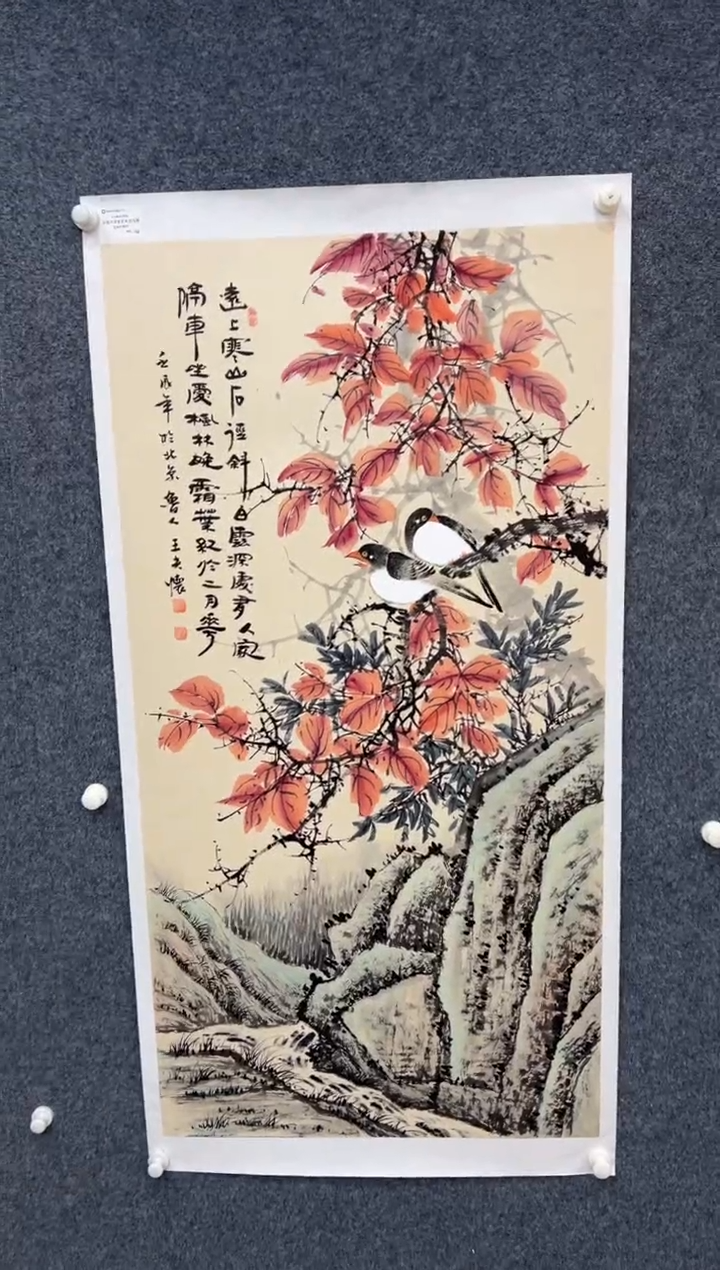 遠上寒山石徑斜白雲深處有人家
停車坐愛楓林晚霜葉紅於二月花
壬辰年於北京魯人王懷